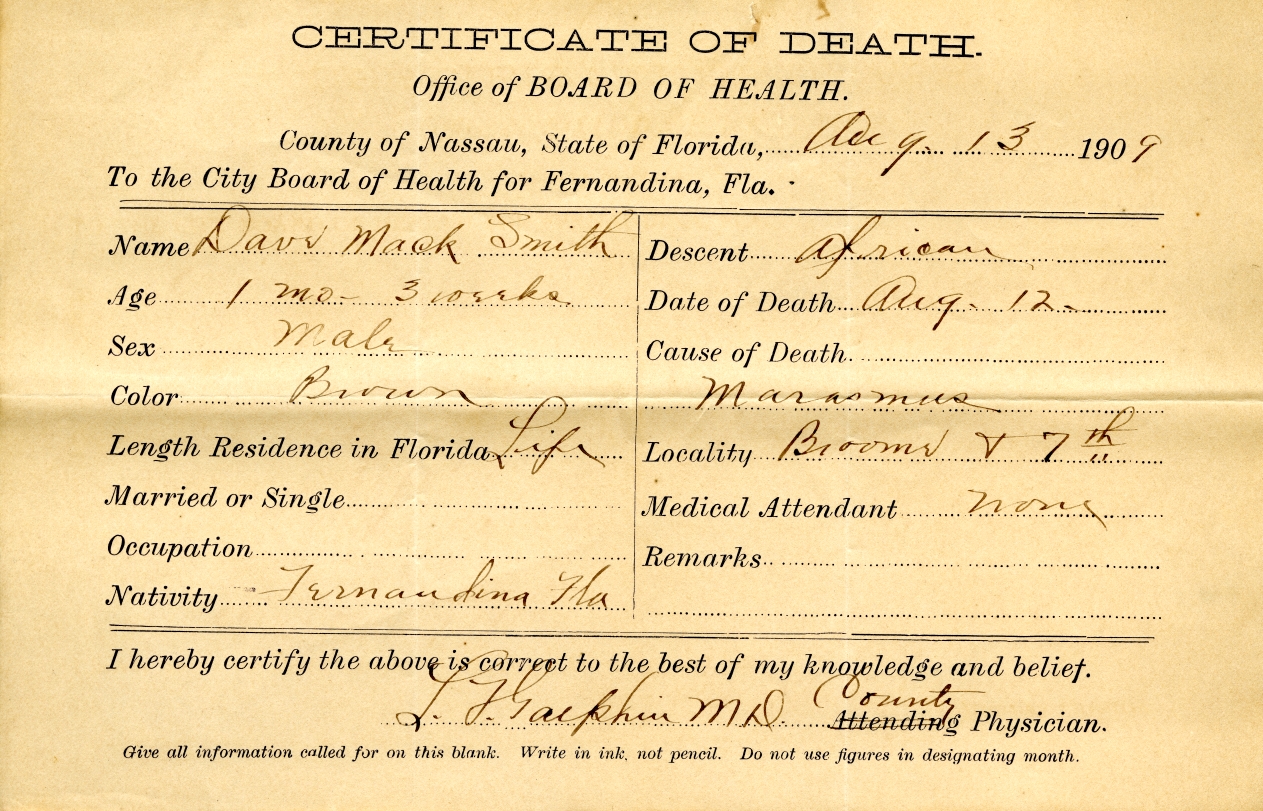 CERTIFICATE OF DEATH.
Office of BOARD OF HEALTH.
County of Nassau, State of Florida, Aug. 13 1909
To the City Board of Health for Fernandina, Fla.
Name Dave Mack Smith
Age 1 mo- 3 weeks
Sex Male
Color Brown
Length Residence in Florida Life
Married or Single
Occupation
Nativity Fernandina Fla
Descent African
Date of Death Aug. 12-
Cause of Death
Marasmus
Locality Broome & 7th
Medical Attendant none
Remarks
I hereby certify the above is correct to the best of my knowledge and belief.
County
M D. Attending Physician.
Give all information called for on this blank. Write in ink, not pencil. Do not use figures in designating month.